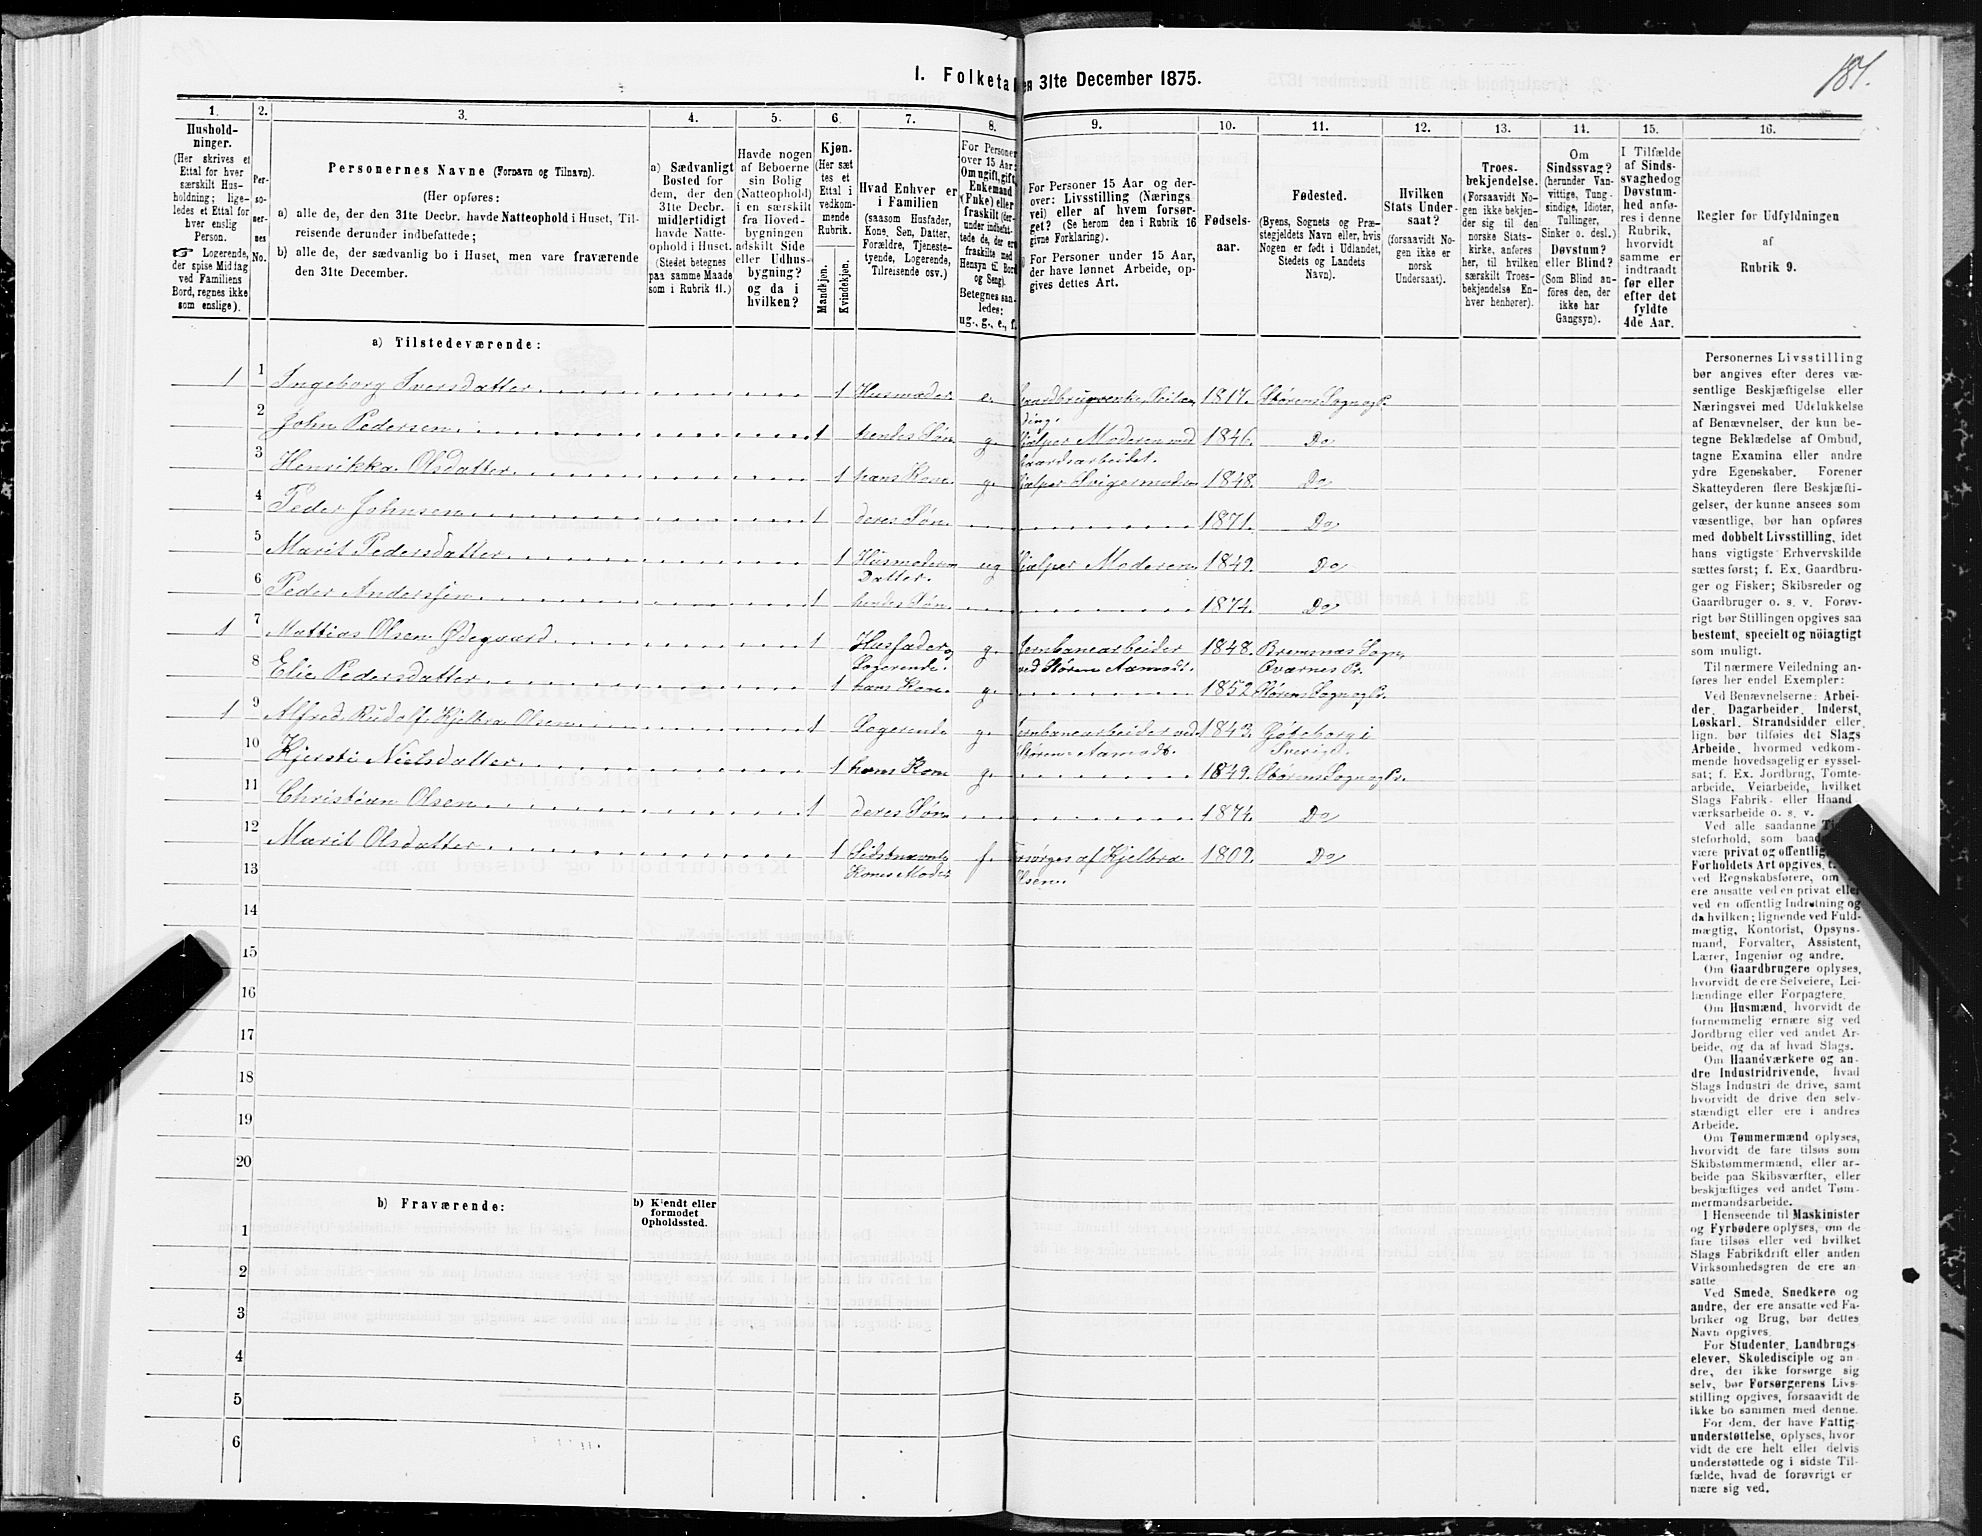 181.
I. Folketal den 31te December 1875.
1. 2. 3. 4. 5. 6. 7. 8. 9. 10. 11. 12. 13. 14. 15. 16.
Hushold-
ninger.
(Her skrives et
Ettal for hver
særskilt Hus-
holdning; lige-
ledes et Ettal for
hver enslig
Person.
☞ Logerende,
der spise Middag
ved Familiens
Bord, regnes ikke
som enslige).
Per-
so-
ner-
nes
No.
Personernes Navne (Fornavn og Tilnavn).
(Her opføres:
a) alle de, der den 31te Decbr. havde Natteophold i Huset, Til-
reisende derunder indbefattede;
b) alle de, der sædvanlig bo i Huset, men vare fraværende
den 31te December.
a) Sædvanligt
Bosted for
dem, der den
31te Decbr.
midlertidigt
havde Natte-
ophold i Huset.
(Stedet betegnes
paa samme Maade
som i Rubrik 11.)
Havde nogen
af Beboerne
sin Bolig
(Natteophold)
i en særskilt
fra Hoved-
bygningen
adskilt Side
eller Udhus-
bygning?
og da i
hvilken?
Kjøn.
(Her sæt
tes et
Ettal i
vedkom-
mende
Rubrik.
Mandkjøn.
Kvindekjøn.
Hvad Enhver er
i Familien
(saasom Husfader,
Kone, Søn, Datter,
Forældre, Tjeneste-
tyende, Logerende,
Tilreisende osv.)
For Personer
over 15 Aar:
Om ugift, gift,
Enkemand
(Enke) eller
fraskilt (der-
under indbefat-
tede de, der er
fraskilte med
Hensyn til Bord
og Seng).
Betegnes saa-
ledes:
ug., g., e., f.
For Personer 15 Aar og der-
over: Livsstilling (Nærings
vei) eller af hvem forsør-
get? (Se herom den i Rubrik 16
givne Forklaring).
For Personer under 15 Aar,
der have lønnet Arbeide, op-
gives dettes Art.
Fødsels-
aar.
Fødested.
(Byens, Sognets og Præ-
stegjeldets Navn eller, hvis
Nogen er født i Udlandet,
Stedets og Landets
Navn).
Hvilken
Stats Under-
saat?
(forsaavidt No-
gen ikke er
norsk
Undersaat).
Troes-
bekjendelse.
(Forsaavidt No-
gen ikke bekjen-
der sig til den
norske Stats-
kirke, anføres
her, til hvilken
særskilt Troes-
bekjendelse En-
hver henhører).
Om
Sindssvag?
(herunder Van-
vittige, Tung-
sindige, Idioter,
Tullinger,
Sinker o. desl.)
Døvstum?
eller Blind?
(Som Blind an-
føres den, der
ikke har
Gangsyn).
I Tilfælde
af Sinds-
svaghed og
Døvstum-
hed anfø-
res i denne
Rubrik,
hvorvidt
samme er
indtraadt
før eller
efter det
fyldte
4de Aar.
Regler for Udfyldningen
af
Rubrik 9.
a) Tilstedeværende:
1 1 Ingeborg Iversdatter 1 Husmoder e. 1817. Størens Sogn og Pr.
2 John Pedersen 1 hendes Søn g. Hjælper Moderen ved 1846. Do
Gaardsarbeidet.
3 Henrikka Olsdatter 1 hans Kone g. Hjælper Svigermoderen 1848. Do
4 Peder Johnsen 1 deres Søn 1871. Do
5 Marit Pedersdatter 1 Husmoderens ug Hjælper Moderen 1849. Do
Datter.
6 Peder Anderssen 1 hendes Søn 1874. Do
1 7 Mattias Olsen Ødegaard 1 Husfader og g. Jernbanearbeider 1848. Bremsnæs Sogn,
Logerende. ved Støren Aamodt. Qværnes Pr.
8 Elie Pedersdatter 1 hans Kone g. 1852 Størens Sogn og Pr.
1 9 Alfred Rudolf Kjelbra Olsen 1 Logerende g. Jernbanearbeider ved 1843. Gøteborg i
Støren Aamodt. Sverige.
10 Kjersti Nielsdatter 1 hans Kone g. 1849. Størens Sogn og Pr.
11 Christian Olsen 1 deres Søn 1874. Do
12 Marit Olsdatter 1 Sidstnævnte f. Forsørges af Kjelbra 1809. Do
Kones Moder Olsen.
13
14
15
16
17
18
19
20
b) Fraværende:
b) Kjendt eller
formodet
Opholdssted.
1
2
3
4
5
6
Personernes Livsstilling
bør angives efter deres væ-
sentlige Beskjæftigelse eller
Næringsvei med Udelukkelse
af Benævnelser, der kun be-
tegne Beklædelse af Ombud,
tagne Examina eller andre
ydre Egenskaber. Forener
Skatteyderen flere Beskjæfti-
gelser, der kunne ansees som
væsentlige, bør han opføres
med dobbelt Livsstilling, idet
hans vigtigste Erhvervskilde
sættes først; f. Ex. Gaardbru-
ger og Fisker; Skibsreder og
Gaardbruger o. s. v. Forøv-
rigt bør Stillingen opgives saa
bestemt, specielt og nöiagtigt
som muligt.
Til nærmere Veiledning an-
føres her endel Exempler:
Ved Benævnelserne: Arbei-
der, Dagarbeider, Inderst,
Løskarl, Strandsidder eller
lign. bør tilføies det Slags
Arbeide, hvormed vedkom-
mende hovedsagelig er syssel-
sat; f. Ex. Jordbrug, Tomte-
arbeide, Veiarbeide, hvilket
Slags Fabrik- eller Haand-
værksarbeide o. s. v.
Ved alle saadanne
steforhold, som
være privat og offentlig,
Forholdets Art opgives,
ved Regnskabsførere, om
ere ansatte ved en privat eller
ved en offentlig Indretning og
da hvilken; lignende ved Fuld-
mægtig, Kontorist, Opsyns-
mand, Forvalter, Assistent,
Lærer, Ingeniør og andre.
Om Gaardbrugere oplyses,
hvorvidt de ere Selveiere, Lei-
lændinge eller Forpagtere.
Om Husmænd, hvorvidt de
fornemmelig ernære sig ved
Jordbrug eller ved andet Ar-
beide, og da af hvad Slags.
Om Haandværkere og an-
dre Industridrivende, hvad
Slags Industri de drive, samt
hvorvidt de drive den selv-
stændigt eller ere i andres
Arbeide.
Om Tømmermænd oplyses,
hvorvidt de fare tilsøs som
Skibstømmermænd, eller ar-
beide paa Skibsværfter, eller
beskjæftiges ved andet Tøm-
mermandsarbeide.
I Henseende til Maskinister
og Fyrbødere oplyses, om de
fare tilsøs eller ved hvilket
Slags Fabrikdrift eller anden
Virksomhedsgren de ere an-
satte
Ved Smede, Snedkere og
andre, der ere ansatte ved Fa-
briker og Brug, bør dettes
Navn opgives.
For Studenter, Landbrugs-
elever, Skoledisciple og an-
dre, der ikke forsørge sig
selv, bør Forsørgerens Livs-
stilling opgives, forsaavidt de
ikke bo sammen med denne.
For dem, der have Fattig-
understøttelse, oplyses, hvor-
vidt de ere helt eller delvis
understøttede og i sidste Til-
fælde, hvad de forøvrigt er
nære sig ved.